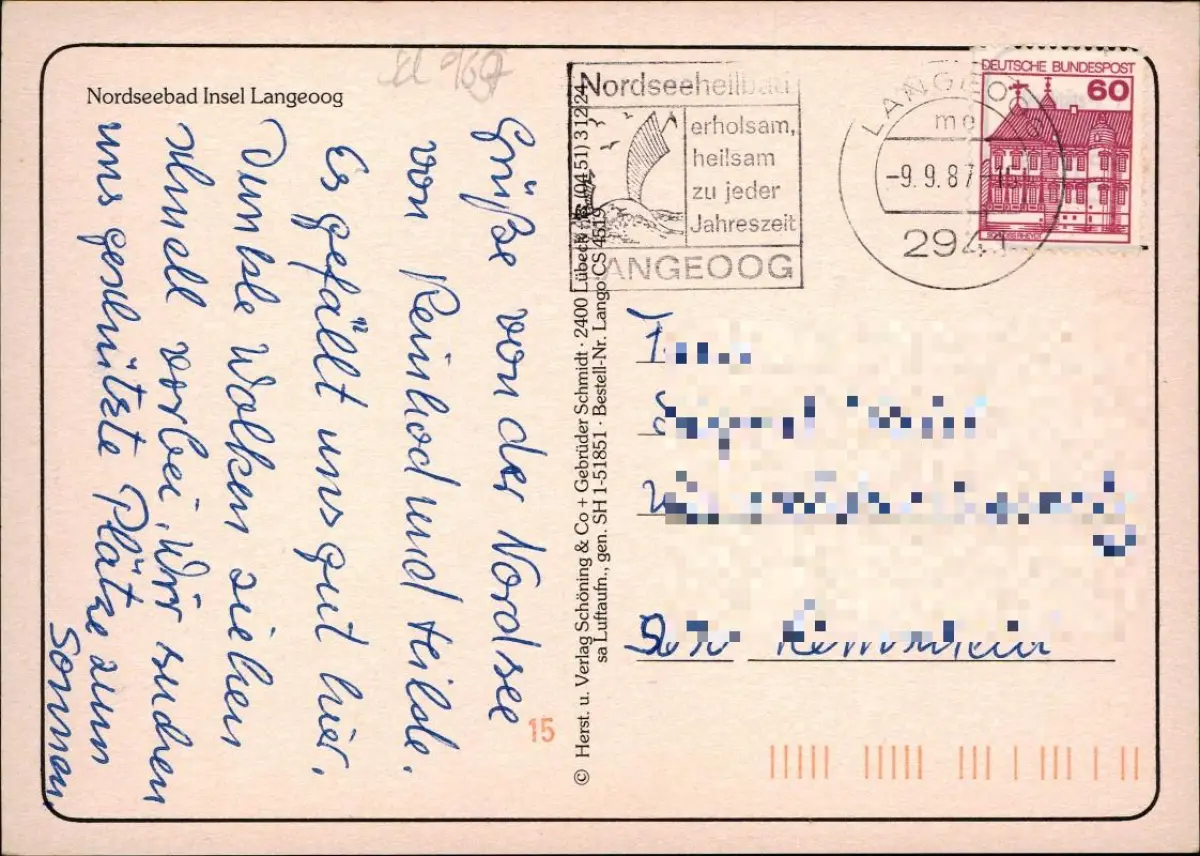 Nordseebad Insel Langeoog
Grüße von der Nordsee
von Reinhod und Hilde.
Es gefällt uns gut hier.
Dunkle Wolken ziehen
schnell vorbei. Wir suchen
uns geschützte Plätze zum
Sonnen
© Herst. u. Verlag Schöning & Co + Gebrüder Schmidt · 2400 Lübeck (0451) 31224
sa Luftaufn., gen. SH 1-51851 · Bestell-Nr. Lango CS 4519
15
Nordseeheilbad
erholsam,
heilsam
zu jeder
Jahreszeit
LANGEOOG
LANGEOOG
-9.9.87-
2941
DEUTSCHE BUNDESPOST
60